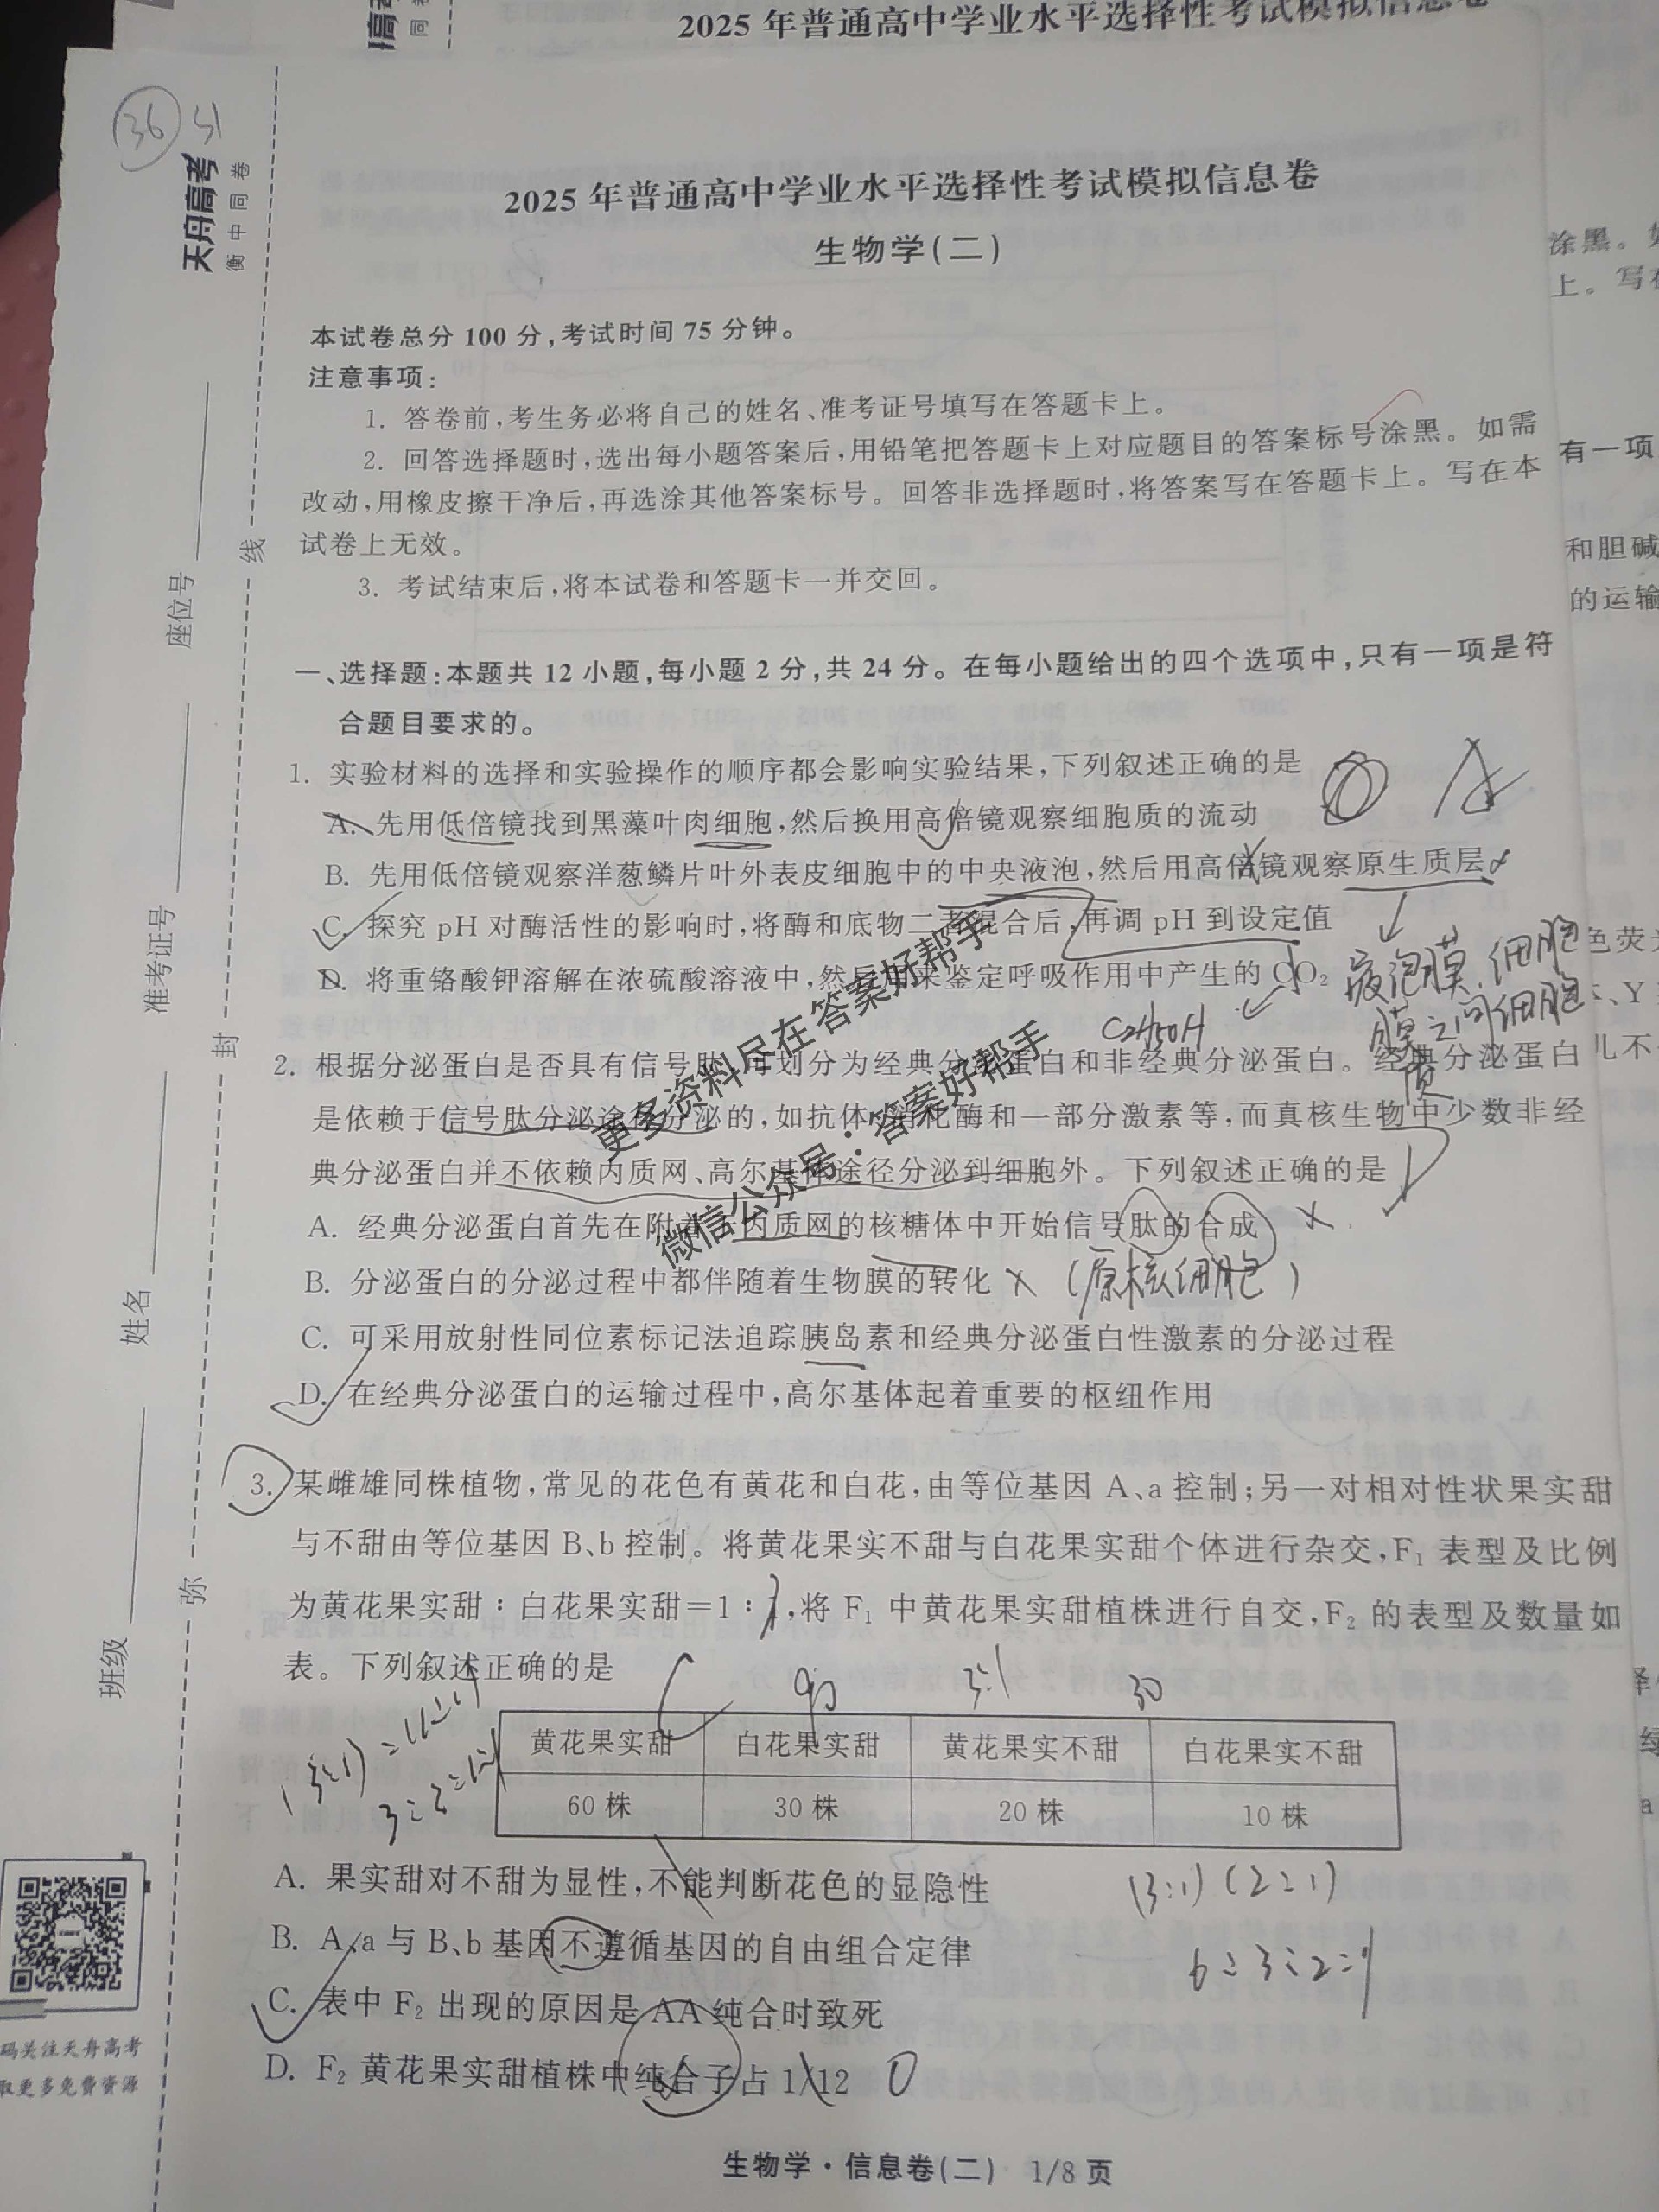 2025 年普通高中学业水平选择性考试模拟信息卷
36
天舟高考
衡中同卷
2025 年普通高中学业水平选择性考试模拟信息卷
生物学(二)
本试卷总分 100 分,考试时间 75 分钟。
注意事项:
1. 答卷前,考生务必将自己的姓名、准考证号填写在答题卡上。
2. 回答选择题时,选出每小题答案后,用铅笔把答题卡上对应题目的答案标号涂黑。如需
改动,用橡皮擦干净后,再选涂其他答案标号。回答非选择题时,将答案写在答题卡上。写在本
试卷上无效。
3. 考试结束后,将本试卷和答题卡一并交回。
一、选择题:本题共 12 小题,每小题 2 分,共 24 分。在每小题给出的四个选项中,只有一项是符
合题目要求的。
1. 实验材料的选择和实验操作的顺序都会影响实验结果,下列叙述正确的是
A. 先用低倍镜找到黑藻叶肉细胞,然后换用高倍镜观察细胞质的流动
B. 先用低倍镜观察洋葱鳞片叶外表皮细胞中的中央液泡,然后用高倍镜观察原生质层
C. 探究 pH 对酶活性的影响时,将酶和底物二者混合后,再调 pH 到设定值
D. 将重铬酸钾溶解在浓硫酸溶液中,然后用来鉴定呼吸作用中产生的 CO₂
液泡膜、细胞
膜之间细胞
质
C2H5OH
2. 根据分泌蛋白是否具有信号肽,可划分为经典分泌蛋白和非经典分泌蛋白。经典分泌蛋白
是依赖于信号肽分泌途径分泌的,如抗体、消化酶和一部分激素等,而真核生物中少数非经
典分泌蛋白并不依赖内质网、高尔基体途径分泌到细胞外。下列叙述正确的是
A. 经典分泌蛋白首先在附着于内质网的核糖体中开始信号肽的合成
B. 分泌蛋白的分泌过程中都伴随着生物膜的转化 × (原核细胞)
C. 可采用放射性同位素标记法追踪胰岛素和经典分泌蛋白性激素的分泌过程
D. 在经典分泌蛋白的运输过程中,高尔基体起着重要的枢纽作用
更多资料尽在答案好帮手
微信公众号:答案好帮手
3. 某雌雄同株植物,常见的花色有黄花和白花,由等位基因 A、a 控制;另一对相对性状果实甜
与不甜由等位基因 B、b 控制。将黄花果实不甜与白花果实甜个体进行杂交,F₁ 表型及比例
为黄花果实甜:白花果实甜=1:1,将 F₁ 中黄花果实甜植株进行自交,F₂ 的表型及数量如
表。下列叙述正确的是
90 3:1 30
黄花果实甜 白花果实甜 黄花果实不甜 白花果实不甜
60 株 30 株 20 株 10 株
A. 果实甜对不甜为显性,不能判断花色的显隐性
B. A、a 与 B、b 基因不遵循基因的自由组合定律
C. 表中 F₂ 出现的原因是 AA 纯合时致死
D. F₂ 黄花果实甜植株中纯合子占 1/12 0
(3:1)(2:1)
6:3:2:1
座位号
准考证号
姓名
班级
线
封
弥
码关注天舟高考
取更多免费资源
生物学·信息卷(二) 1/8 页
涂黑。如
上。写在
有一项
和胆碱
的运输
色荧光
、Y
儿不